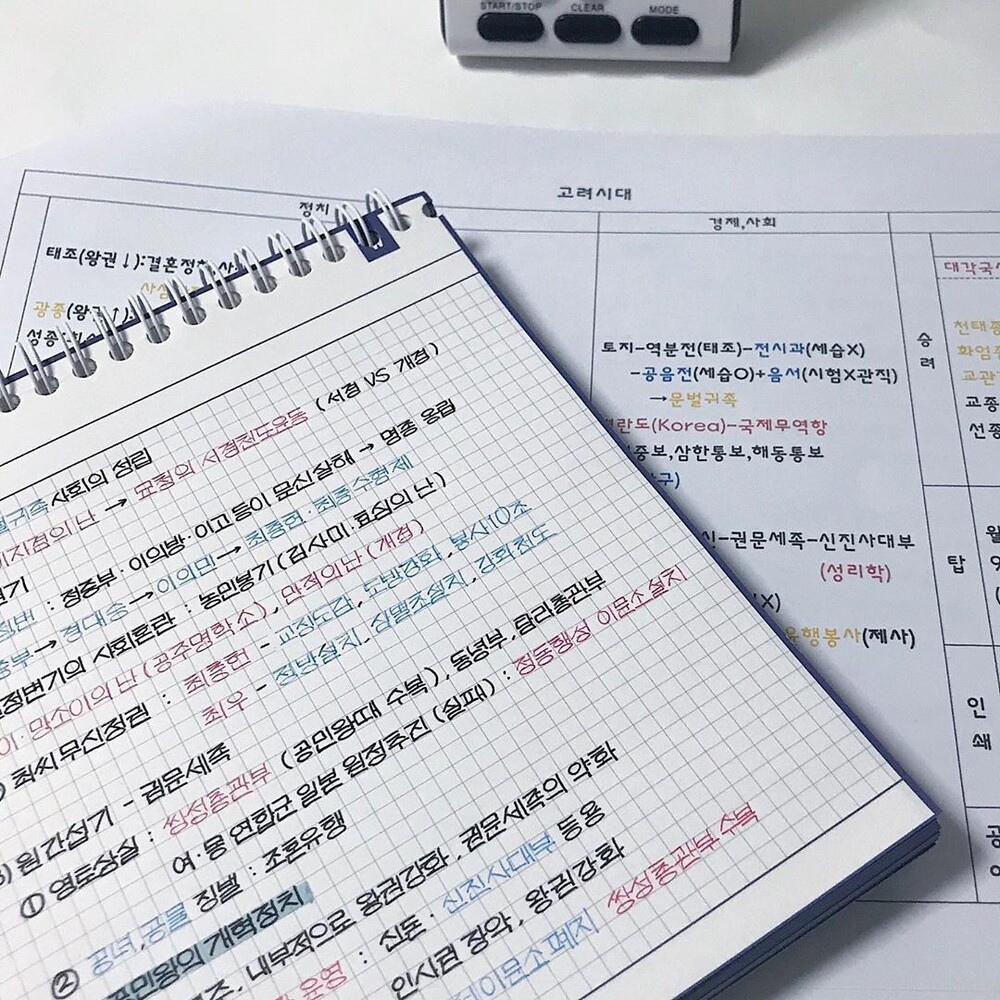 START/STOP CLEAR MODE
고려시대
정치
경제,사회
태조(왕권↓):결혼정책
광종(왕권↑)
성종
토지-역분전(태조)-전시과(세습X)
-공음전(세습O)+음서(시험X관직)
→문벌귀족
란도(Korea)-국제무역항
중보,삼한통보,해동통보
구)
신-권문세족-신진사대부
(성리학)
X)
유행봉사(제사)
승려
탑
인쇄
대각국
천태종
화엄종
교관
교종
선종
귀족 사회의 성립
이자겸의 난 → 묘청의 서경천도운동 (서경 VS 개경)
: 정중부·이의방·이고 등이 문신살해 → 명종 옹립
중부 → 경대승 → 이의민 → 최충헌·최충수형제
정변기의 사회혼란 : 농민봉기 (김사미·효심의 난)
이·망소이의 난 (공주명학소), 만적의 난 (개경)
최씨 무신정권 : 최충헌 - 교정도감, 도방강화, 봉사10조
최우 - 정방설치, 삼별초설치, 강화천도
3) 원 간섭기 - 권문세족
① 영토상실 : 쌍성총관부 (공민왕때 수복), 동녕부, 탐라총관부
여·몽 연합군 일본 원정추진 (실패) : 정동행성 이문소 설치
② 공녀, 공물 징벌 : 조혼유행
공민왕의 개혁정치
내부적으로 왕권강화, 권문세족의 약화
: 신돈 : 신진사대부 등용
인사권 장악, 왕권강화
이문소 폐지 쌍성총관부 수복